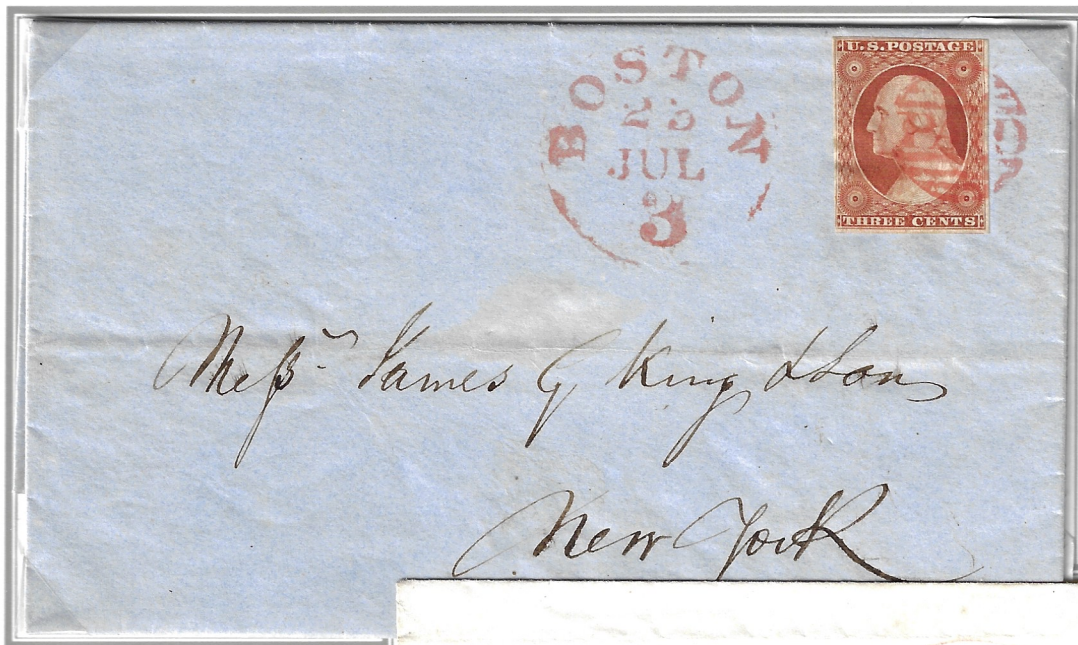 BOSTON
JUL
3
U.S. POSTAGE
THREE CENTS
Messrs James G King & Sons
New York